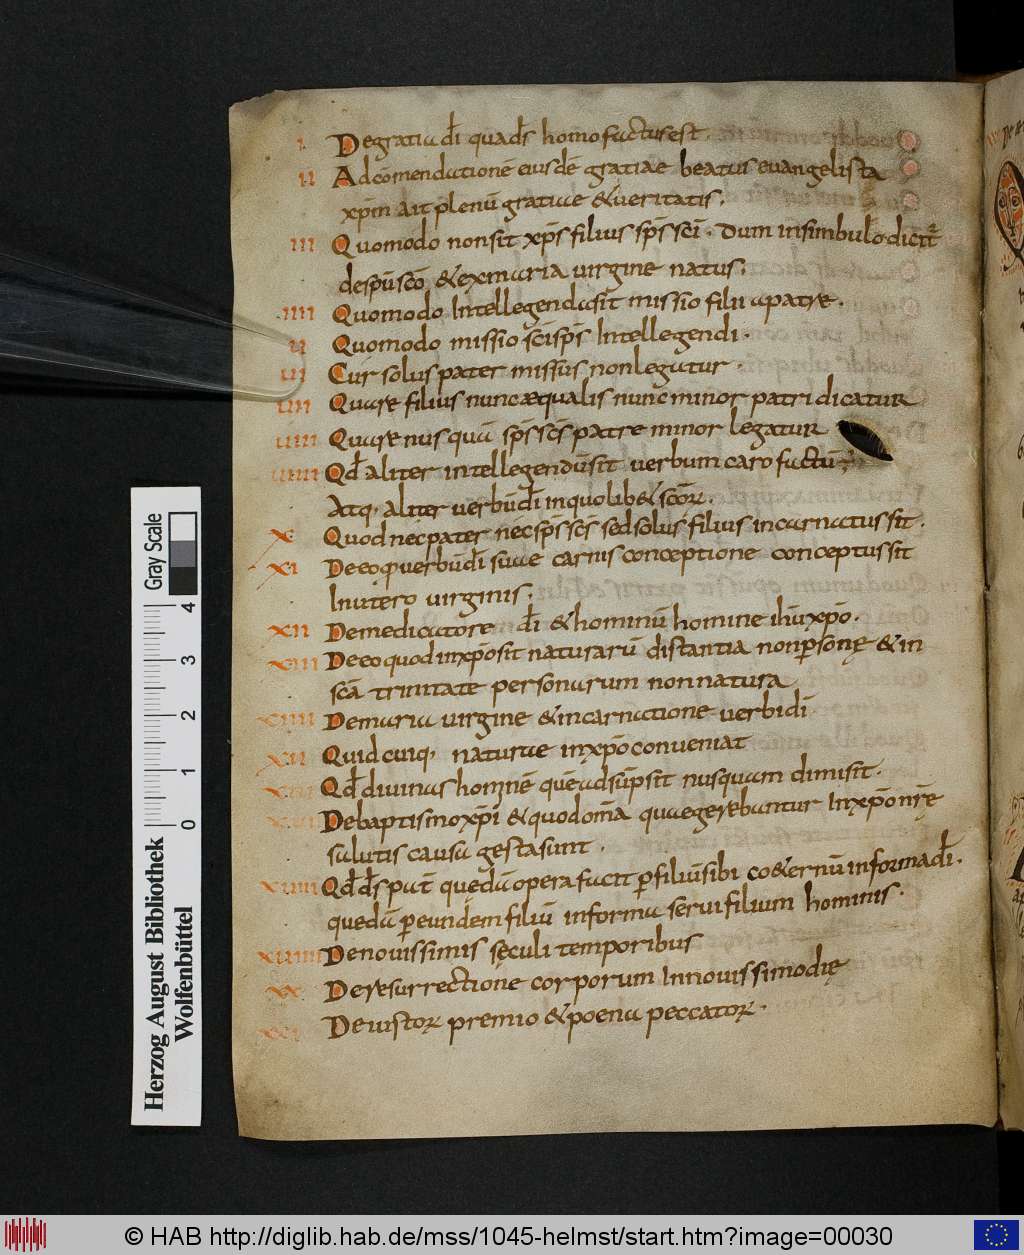 I. De gratia dī qua ds̄ homo factus est.
II Ad cōmendationē eiusdē gratiae beatus euangelista
xp̄m ait plenū gratiae & ueritatis.
III Quomodo non sit xp̄s filius sp̄s sc̄i. Dum in simbulo dicit᷒
de sp̄u sc̄o, & ex maria uirgine natus.
IIII Quomodo Intellegenda sit missio filii a patre.
U Quomodo missio sc̄i sp̄s Intellegendi.
UI Cur solus pater missus non legatur.
UII Quare filius nunc æqualis nunc minor patri dicatur
UIII Quare nusquā sp̄s sc̄s patre minor legatur
UIIII Qd̄ aliter intellegendū sit uerbum caro factū;
Atq· aliter uerbū dī in quolib& sc̄oꝝ.
X Quod nec pater nec sp̄s sc̄s sed solus filius incarnatus sit.
XI De eo ꝙ uerbū dī suae carnis conceptione conceptus sit
In utero uirginis.
XII De mediatore dī & hominū homine ihū xp̄o.
XIII De eo quod in xp̄o sit naturarū distantia non ꝑsonę & in
sc̄a trinitate personarum non natura
XIIII De maria uirgine & incarnatione uerbi dī
XU Quid cuiq· naturae in xp̄o conueniat
XUI Qd̄ diuinas hominē quē adsūpsit nusquam dimisit.
XUII De baptismo xp̄i & quod om̄a quae gerebantur In xp̄o nr̄ę
salutis causa gesta sunt.
XUIII Qd̄ ds̄ pat̄ quedā opera facit ꝑ filiū sibi co&ernū in forma dī.
quedā ꝑ eundem filiū in forma serui filium hominis.
XUIIII De nouissimis sęculi temporibus
XX De resurrectione corporum In nouissimo dię
XXI De iustoꝝ premio & poena peccatoꝝ.
Gray Scale
0 1 2 3 4
Herzog August Bibliothek
Wolfenbüttel
© HAB http://diglib.hab.de/mss/1045-helmst/start.htm?image=00030